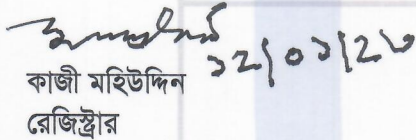 ১২/০১/২৩
কাজী মহিউদ্দিন
রেজিস্ট্রার